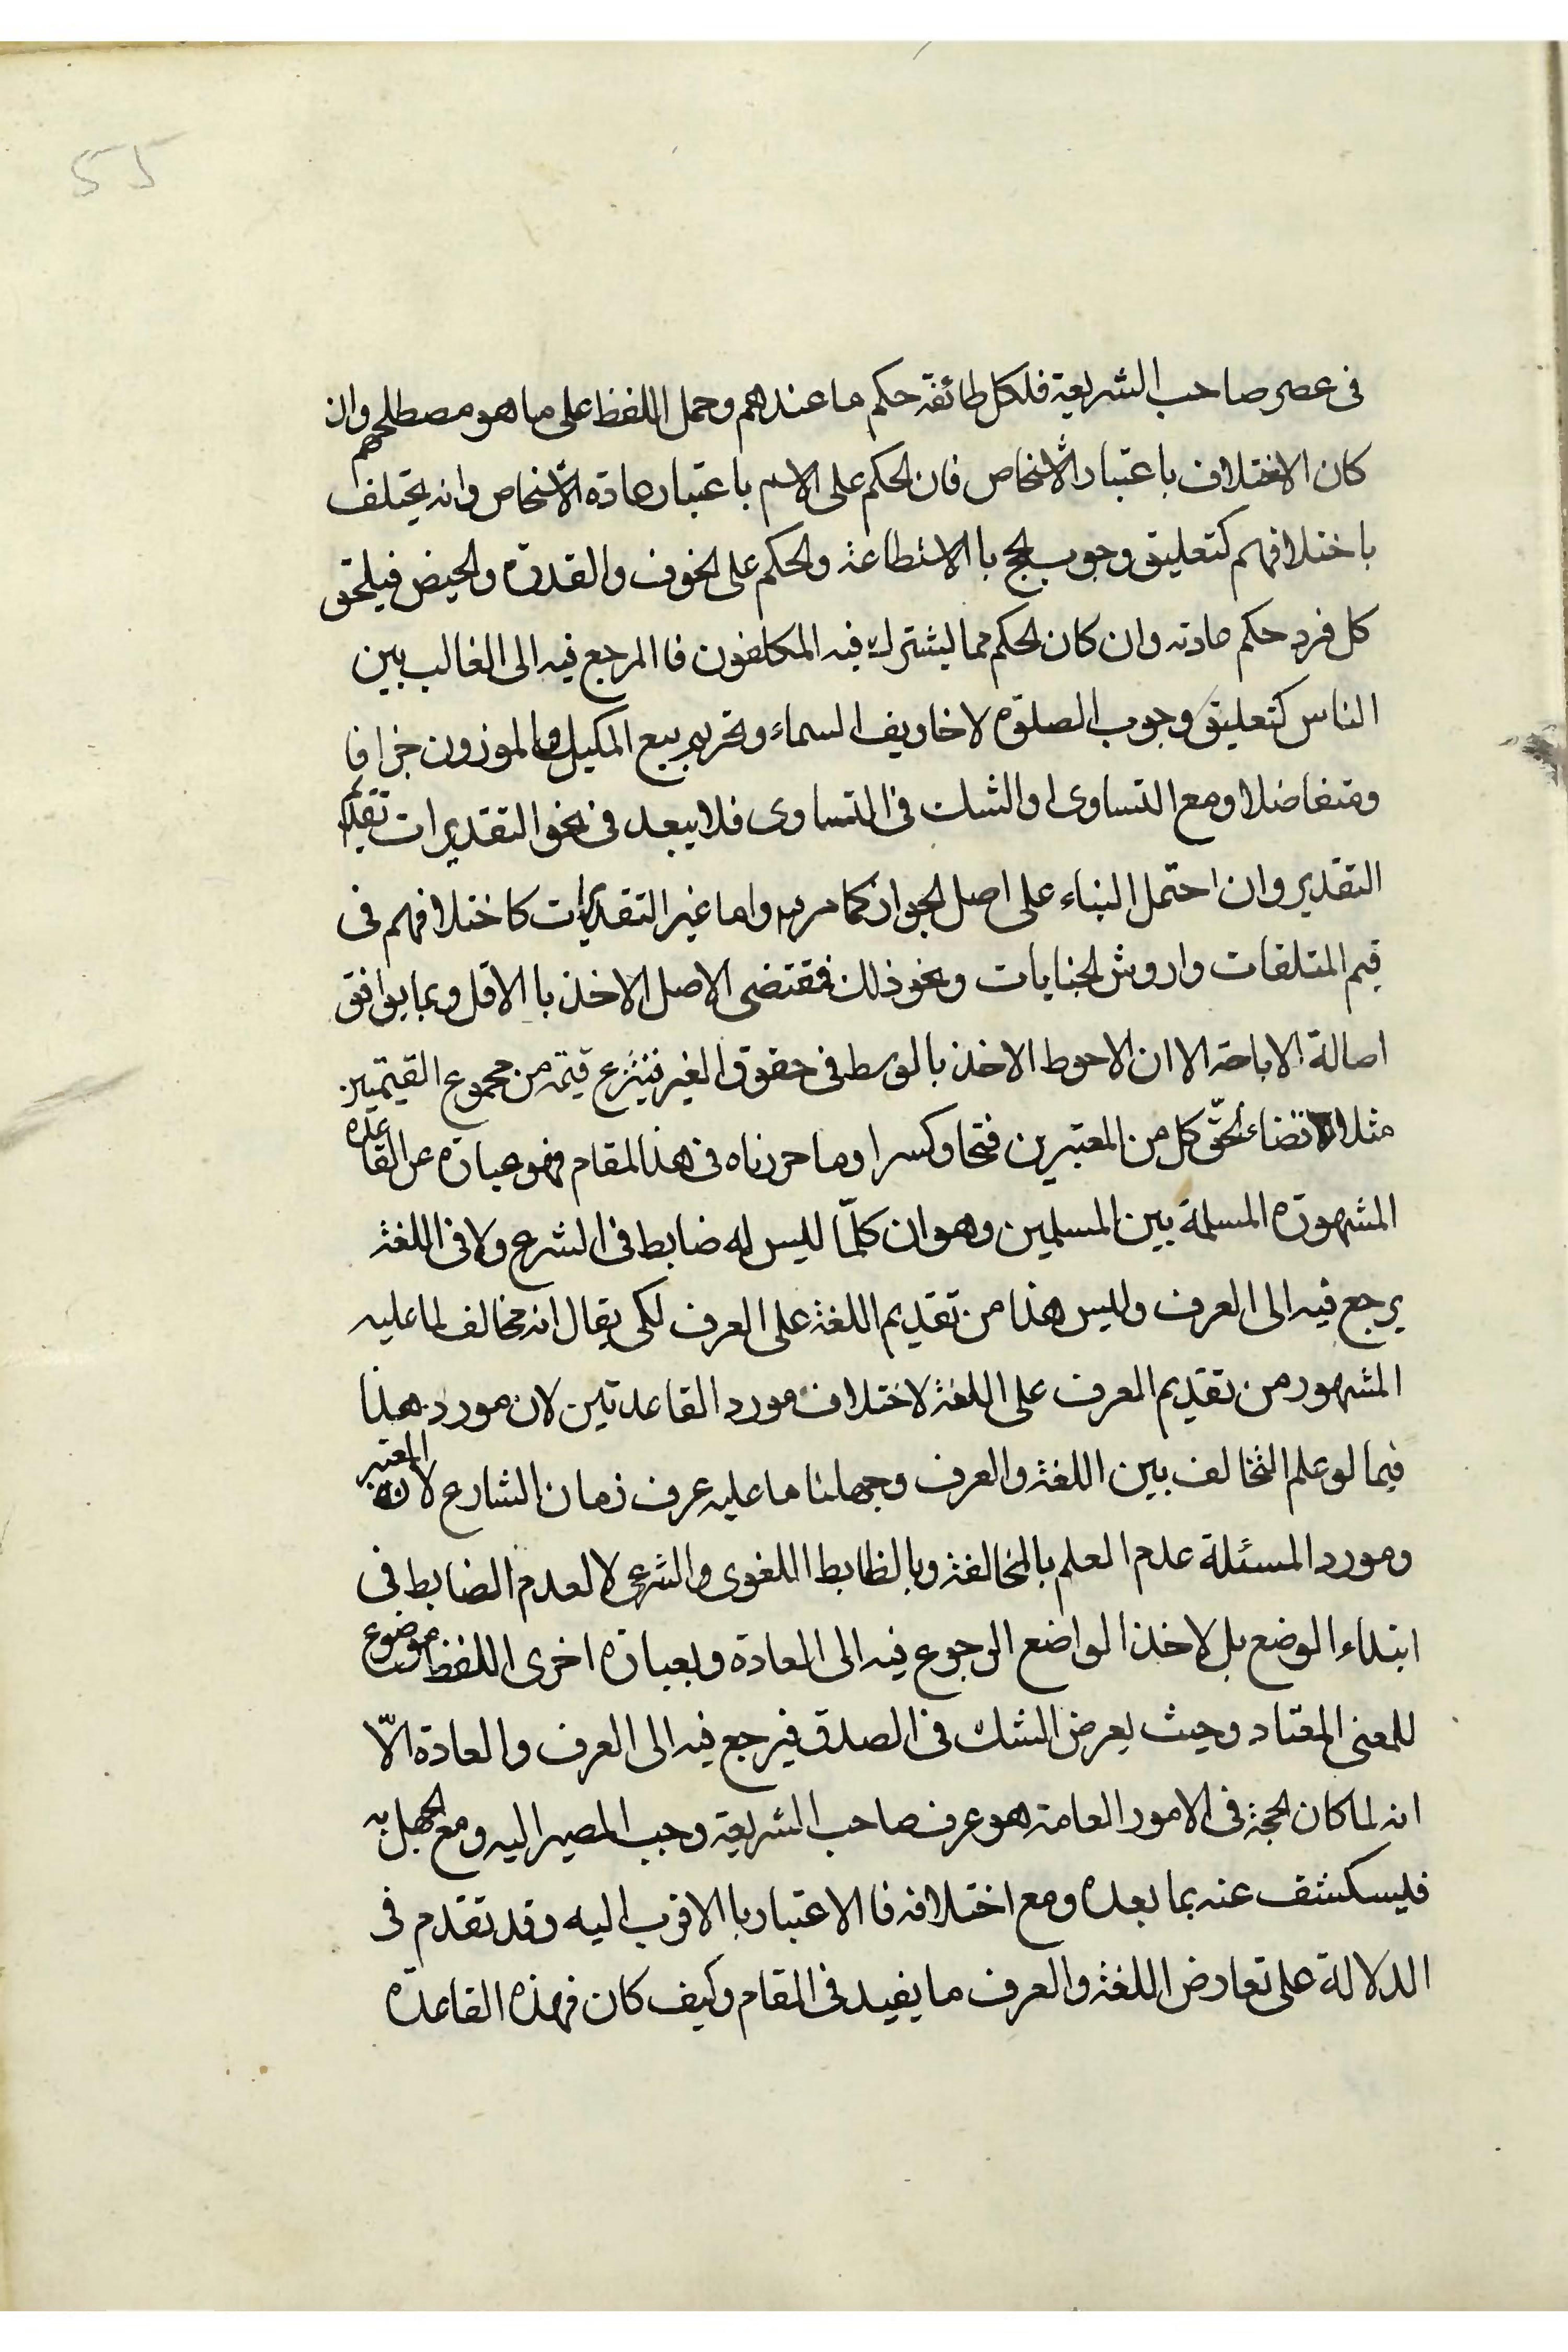 55
فى عصر صاحب الشريعة فلكل طائفة حكم ما عندهم وحمل اللفظ على ما هو مصطلحهم وان
كان الاختلاف باعتبار الاشخاص فان الحكم على الاسم باعتبار عادة الاشخاص وانه يختلف
باختلافهم كتعليق وجوب الحج با الاستطاعة والحكم على الخوف والقدرة والحيض فيلحق
كل فرد حكم عادته وان كان الحكم مما يشترك فيه المكلفون فا المرجع فيه الى الغالب بين
الناس كتعليق وجوب الصلوة لاخاويف السماء وتحريم بيع المكيل والموزون جزافا
ومتفاضلا ومع التساوى او الشك فى التساوى فلا يبعد فى نحو التقديرات تقديم
التقدير وان احتمل البناء على اصل الجواز كما مر واما غير التقديرات كاختلافهم فى
قيم المتلفات واروش الجنايات ونحو ذلك فمقتضى الاصل الاخذ با الاقل وبما يوافق
اصالة الاباحة الا ان الاحوط الاخذ بالوسط فى حقوق الغير فينتزع قيمة من مجموع القيمتين
مثلا لاقتضاء لحق كل من المعتبرين فتحا وكسرا وما حررناه فى هذا المقام فهو عبارة عن القاعدة
المشهورة المسلمة بين المسلمين وهو ان كلّما ليس له ضابط فى الشرع ولا فى اللغة
يرجع فيه الى العرف وليس هذا من تقديم اللغة على العرف لكى يقال انه مخالف لما عليه
المشهور من تقديم العرف على اللغة لاختلاف مورد القاعدتين لان مورد هذا
فيما لو علم التخالف بين اللغة والعرف وجهلنا ما عليه عرف زمان الشارع لانه المعتبر
ومورد المسئلة عدم العلم بالمخالفة وبالظابط اللغوى والشرعى لا لعدم الضابط فى
ابتداء الوضع بل لاخذ الواضع الرجوع فيه الى العادة وبعبارة اخرى اللفظ موضوع
للمعنى المعتاد وحيث يعرض الشك فى الصدق فيرجع فيه الى العرف والعادة الّا
انه لما كان الحجة فى الامور العامة هو عرف صاحب الشريعة وجب المصير اليه ومع الجهل به
فليسكشف عنه بما بعده ومع اختلافه فا الاعتبار با الاقرب اليه وقد تقدم فى
الدلالة على تعارض اللغة والعرف ما يفيد فى المقام وكيف كان فهذه القاعدة